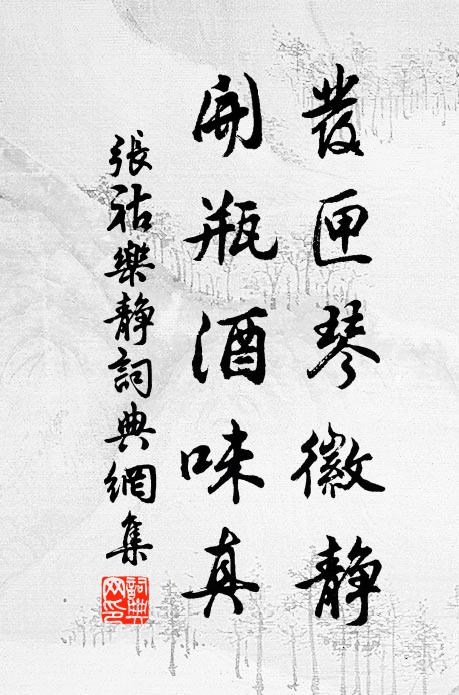 發匣琴徽靜
開瓶酒味真
張祜樂靜詞典網集
詞典網印